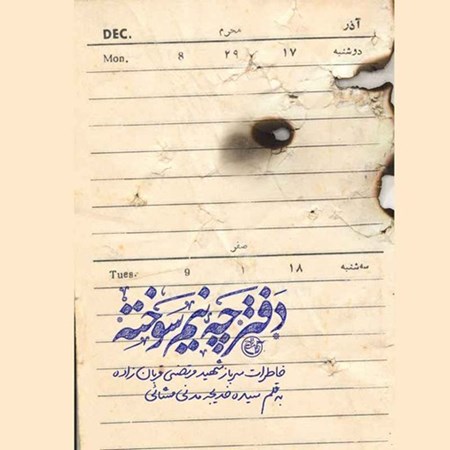 DEC. محرم آذر
Mon. 8 ۲۹ ۱۷ دوشنبه
صفر
Tues. 9 ۱ ۱۸ سه شنبه
دفترچه نیم سوخته
خاطرات سرباز شهید مرتضی زاده
به قلم سیده خدیجه مدنی مشائی